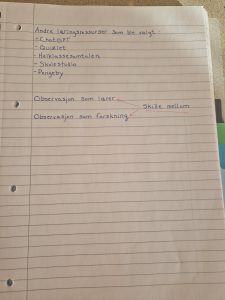 Andre læringsressurser som ble valgt
- ChatGPT
- Quizlet
- Helklassesamtalen
- Skolestudio
- Pengeby
Observasjon som lærer
Skille mellom
Observasjon som forskning